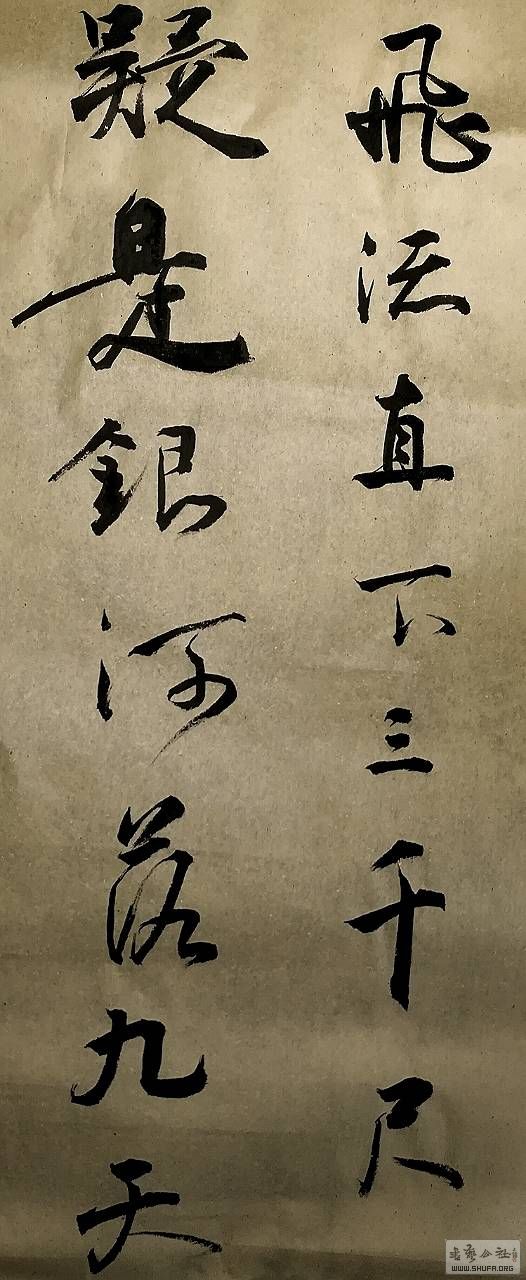 飛流直下三千尺
疑是銀河落九天
書藝公社
WWW.SHUFA.ORG